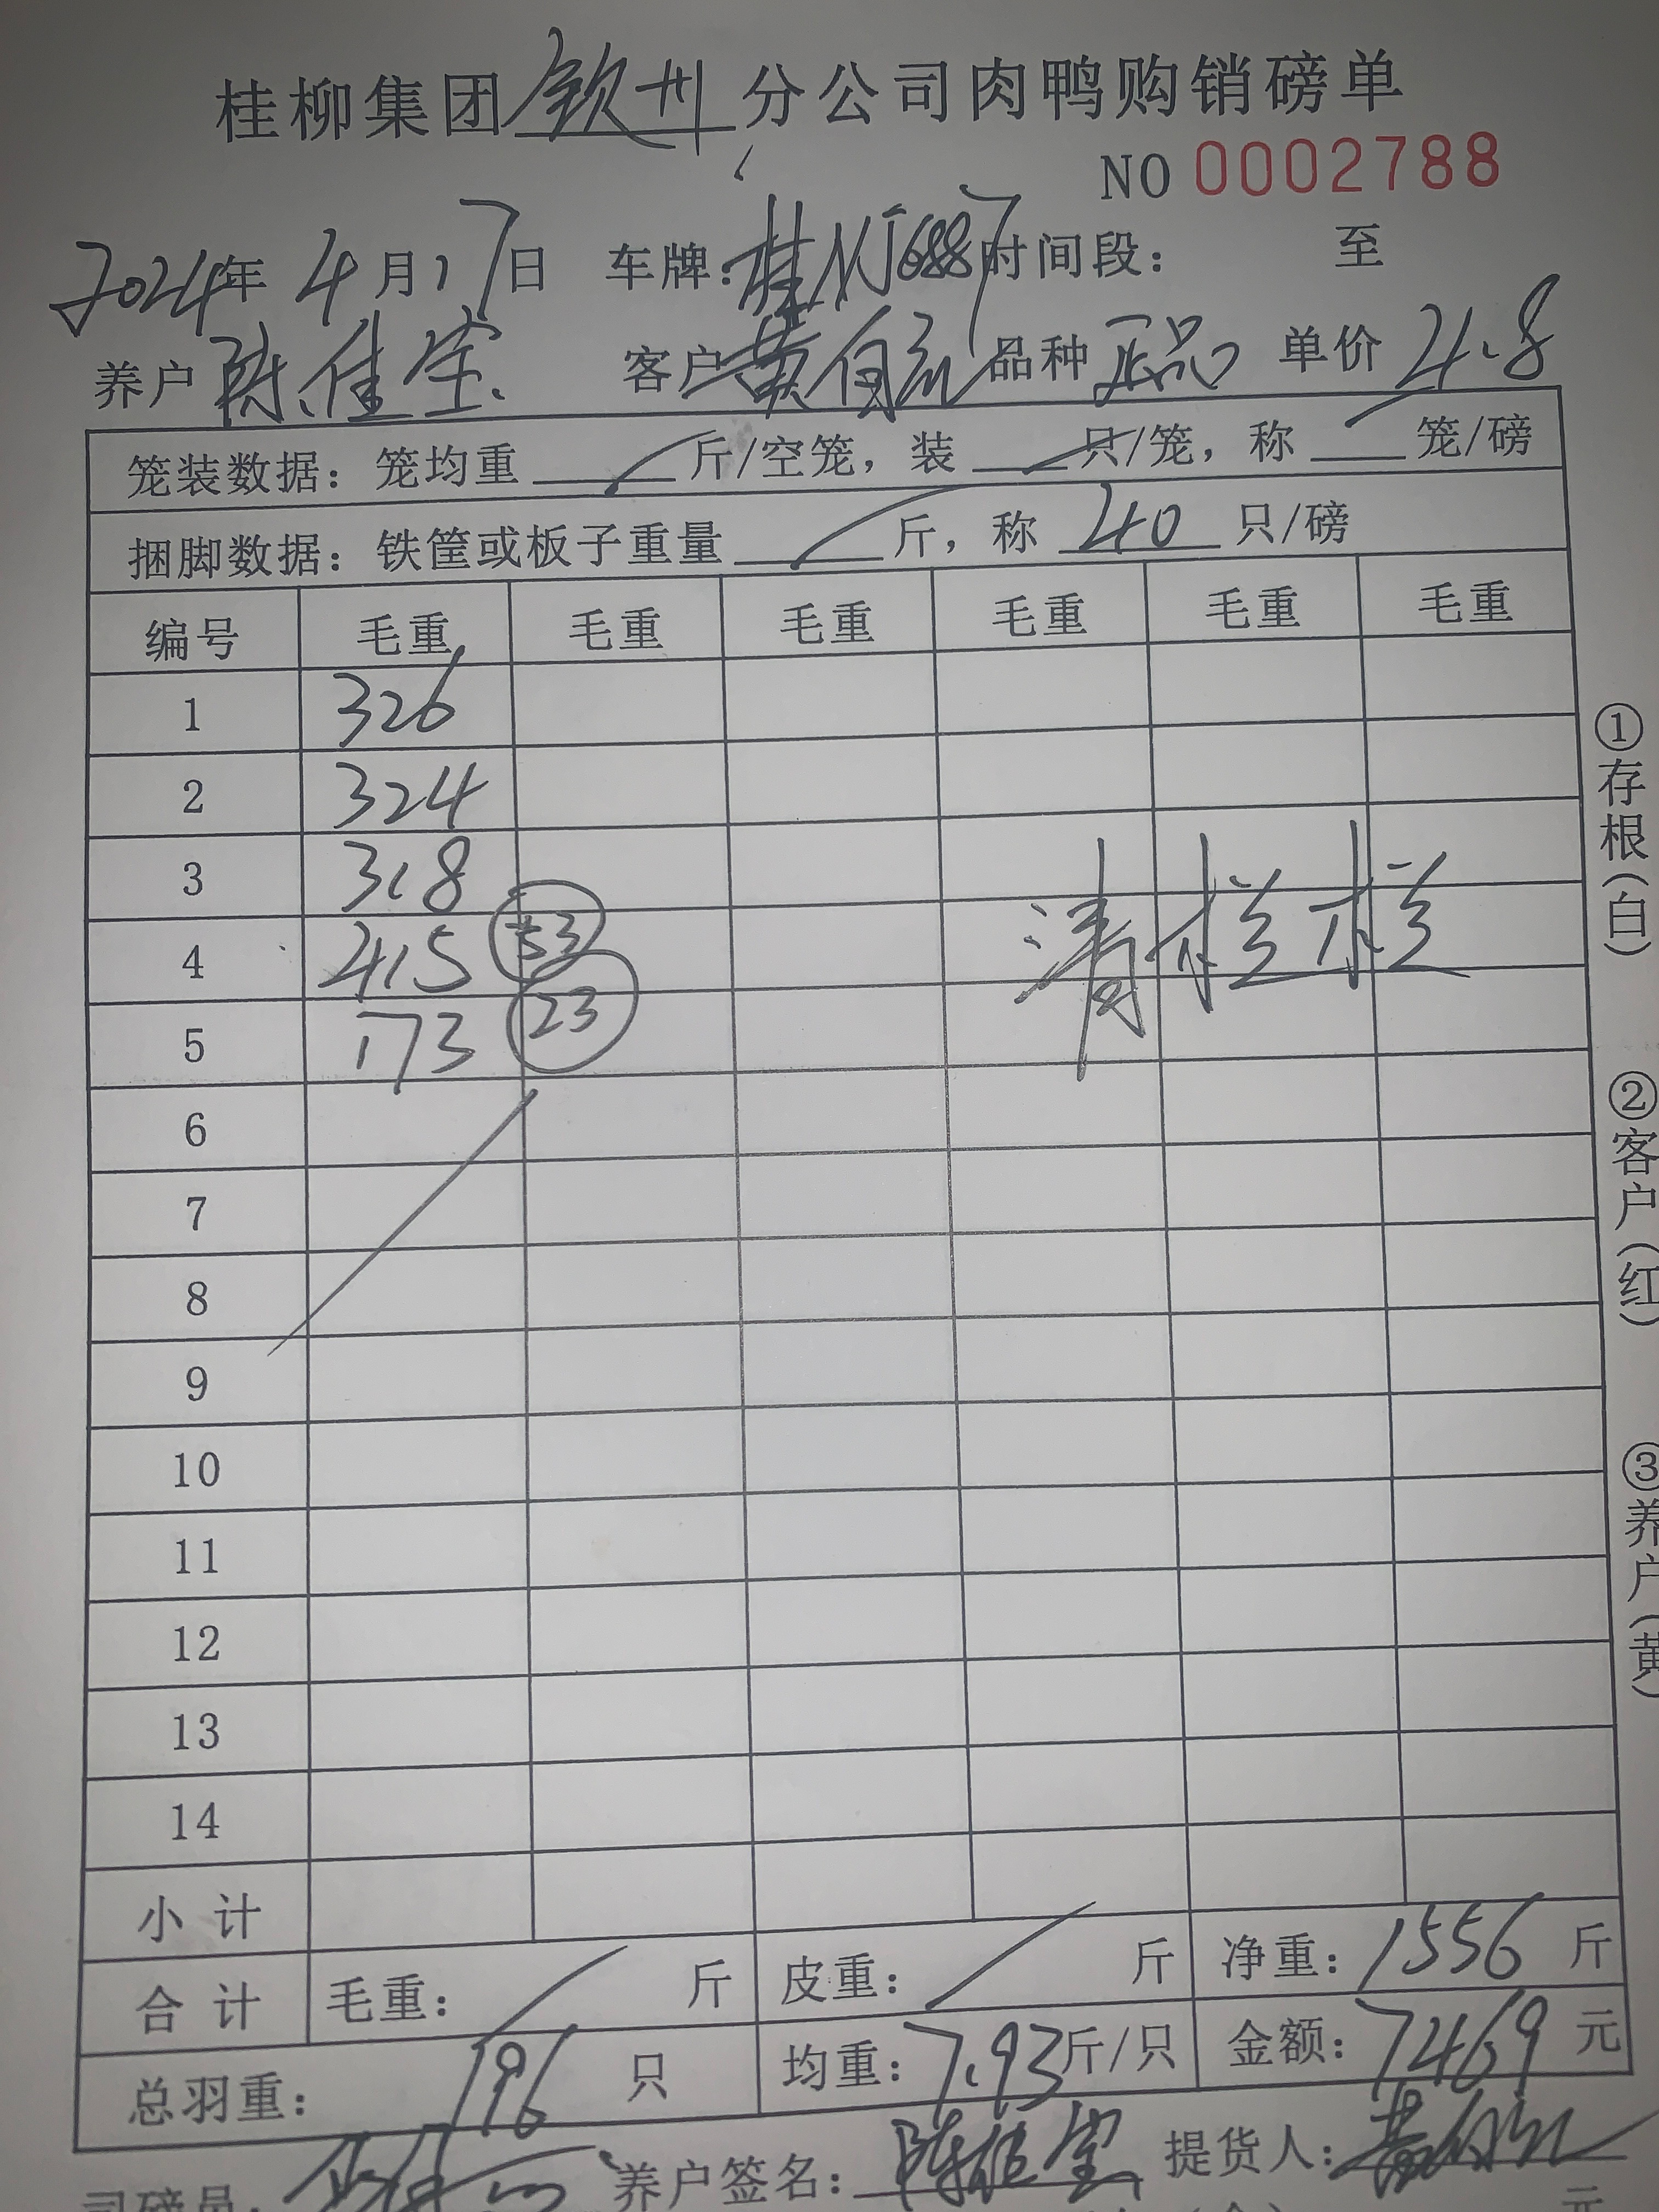 桂柳集团钦州分公司肉鸭购销磅单
NO 0002788
2024年 4月17日 车牌:桂NJ6887时间段: 至
养户 陈佳宝 客户 黄自 品种 正品 单价 4.8
笼装数据: 笼均重 斤/空笼, 装 只/笼, 称 笼/磅
捆脚数据: 铁筐或板子重量 斤, 称 40 只/磅
编号 毛重 毛重 毛重 毛重 毛重 毛重
1 326
2 324
3 318
4 415 53
5 173 23
清栏栏
6
7
8
9
10
11
12
13
14
小计
合计 毛重: 斤 皮重: 斤 净重: 1556 斤
总羽重: 196 只 均重: 7.93斤/只 金额: 7469 元
司磅员: 养户签名: 陈佳宝 提货人:
元
①存根(白)
②客户(红)
③养户(黄)